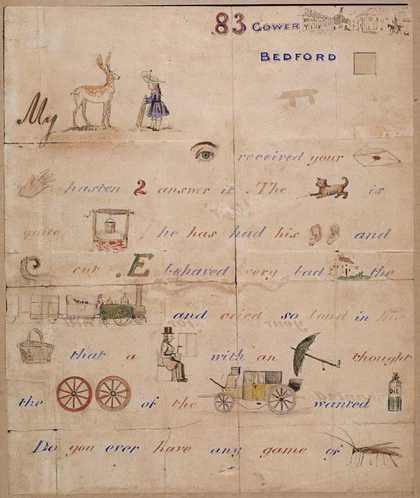 83 GOWER
BEDFORD
My
received your
hasten 2 answer it. The is
quite he has had his and
cut. E behaved very bad the
and cried so loud in his
that a with an thought
the of the wanted
Do you ever have any game of